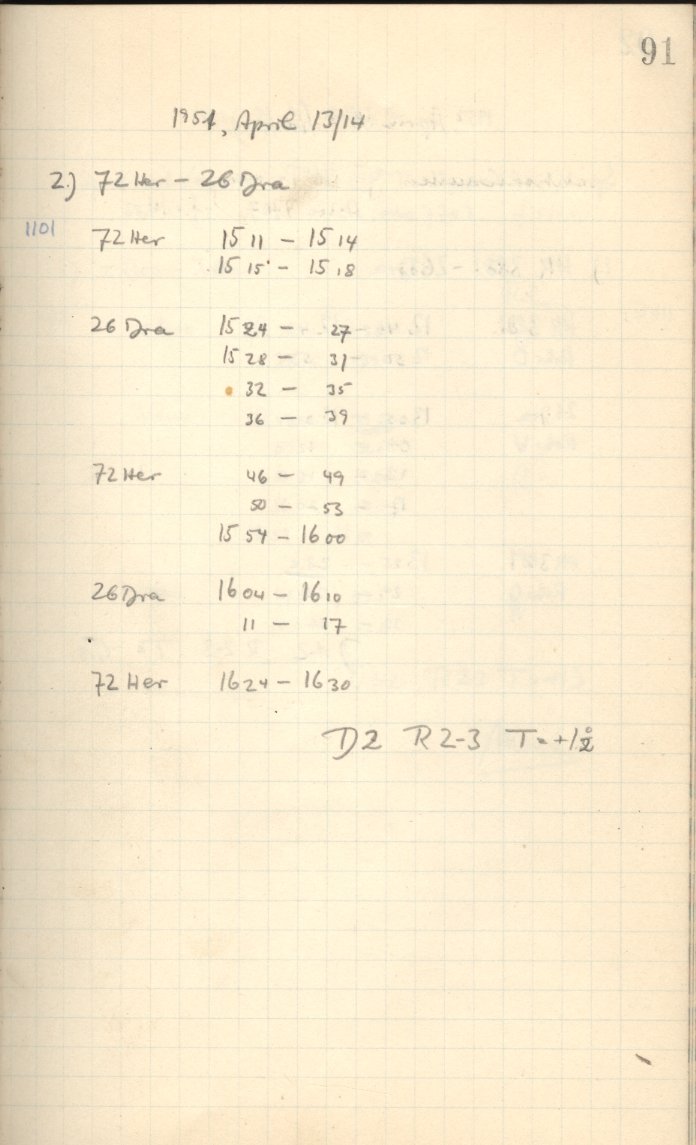 91
1951, April 13/14
2.) 72 Her - 26 Dra
1101
72 Her 15 11 - 15 14
15 15 - 15 18
26 Dra 15 24 - 27
15 28 - 31
32 - 35
36 - 39
72 Her 46 - 49
50 - 53
15 54 - 16 00
26 Dra 16 04 - 16 10
11 - 17
72 Her 16 24 - 16 30
D2 R 2-3 T = +1°2